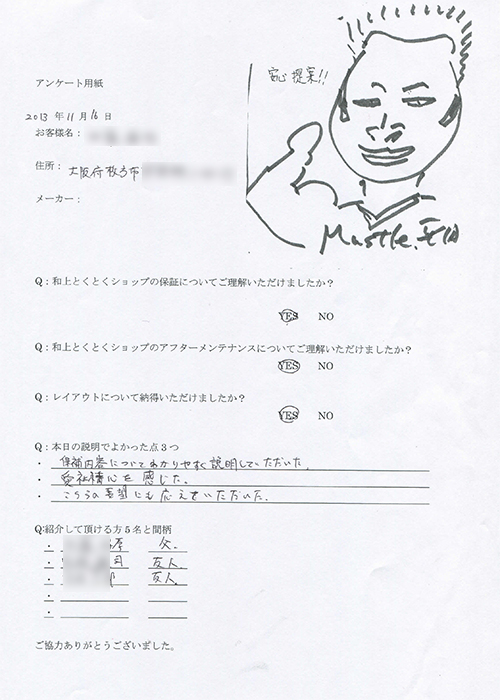 アンケート用紙
安心提案!!
2013 年 11 月 16 日
お客様名:
住所: 大阪府枚方市
メーカー:
Mustle.
Q:和上とくとくショップの保証についてご理解いただけましたか?
YES NO
Q:和上とくとくショップのアフターメンテナンスについてご理解いただけましたか?
YES NO
Q:レイアウトについて納得いただけましたか?
YES NO
Q:本日の説明でよかった点3つ
・ 保補内容についてわかりやすく説明していただいた。
・ 愛社精心を感じた。
・ こちらの要望にも応えていただいた。
Q:紹介して頂ける方5名と間柄
・ 父.
・ 友人.
・ 友人.
・
・
ご協力ありがとうございました。